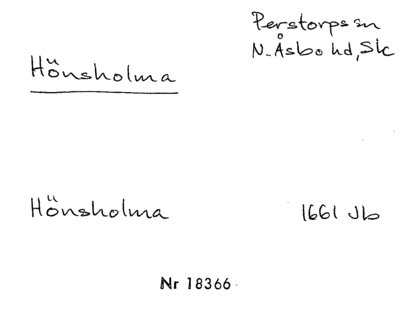 Perstorps sn
N. Åsbo hd, Sk
Hönsholma
Hönsholma 1661 Jb
Nr 18366